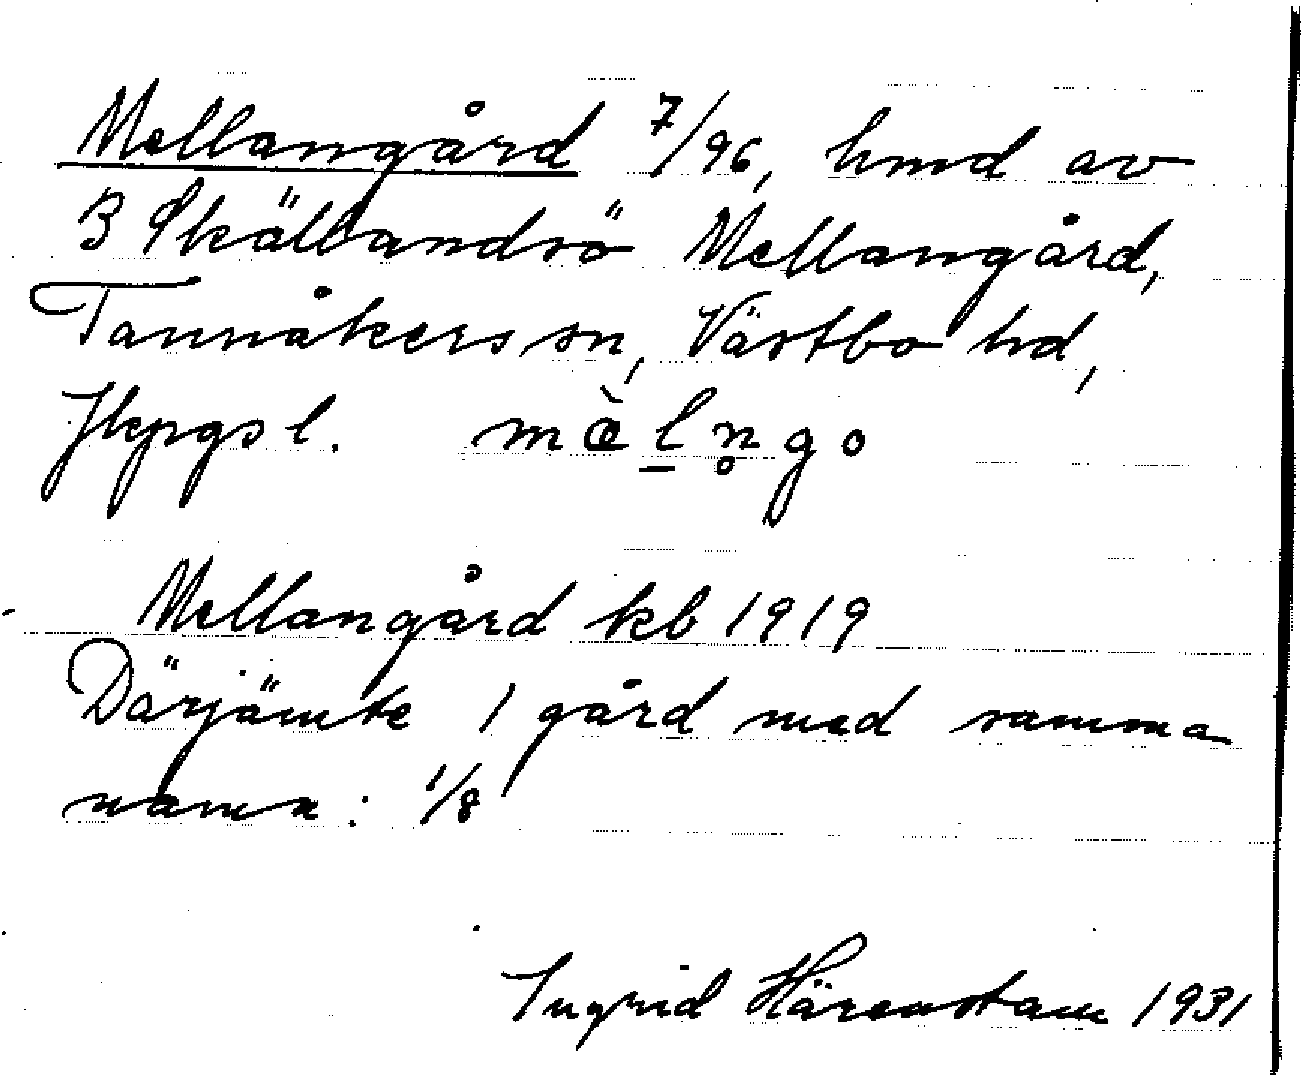 Mellangård 7/96, hmd av
3 Skällandsö Mellangård,
Tannåkers sn, Västbo hd,
Jkpgs l. mæ̀l̠n̥go
Mellangård kb 1919
Därjämte 1 gård med samma
namn: 1/8
Ingrid Härenstam 1931